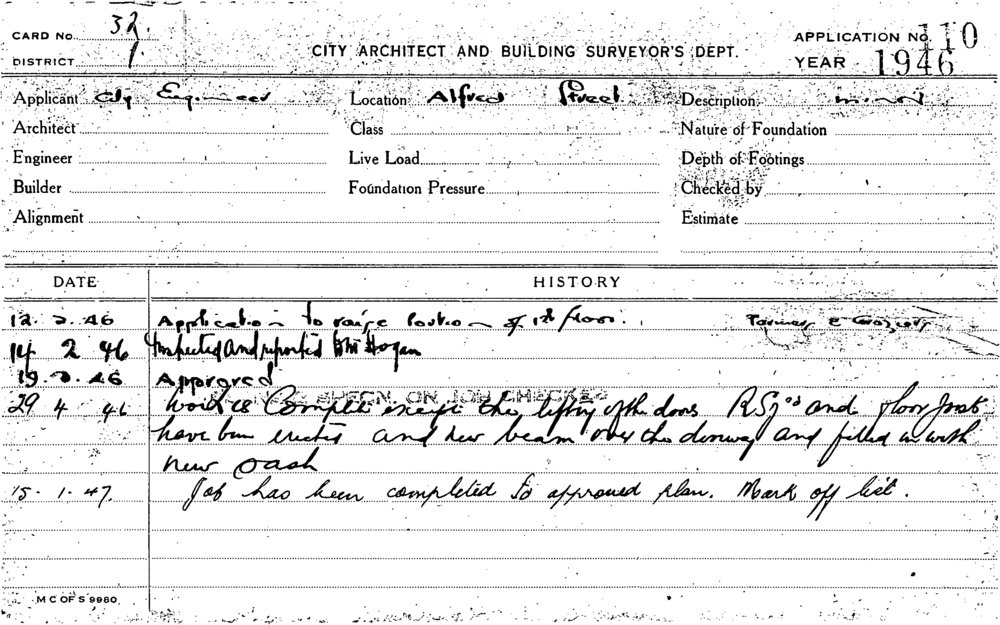 CARD No. 32.
DISTRICT 1.
CITY ARCHITECT AND BUILDING SURVEYOR'S DEPT.
APPLICATION No. 110
YEAR 1946
Applicant City Engineer Location Alfred Street Description minor
Architect Class Nature of Foundation
Engineer Live Load Depth of Footings
Builder Foundation Pressure Checked by
Alignment Estimate
DATE HISTORY
12. 2. 46 Application to raise portion of 1st floor.
14 2 46 Inspected and reported Mr Hogan
19. 2. 46 Approved
SPECN. ON JOB CHECKED
29 4 46 Work is Complete except the lifting of the doors RSJ's and floor joist
have been erected and new beam over the doorway and filled in with
new sash
15. 1. 47. Job has been completed to approved plan. Mark off list.
M C OF S 9980